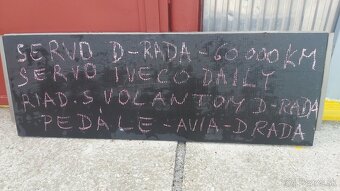 SERVO D-RADA - 60 000KM
SERVO IVECO DAILY
RIAD. S VOLANTOM D-RADA
PEDALE - AVIA - D.RADA